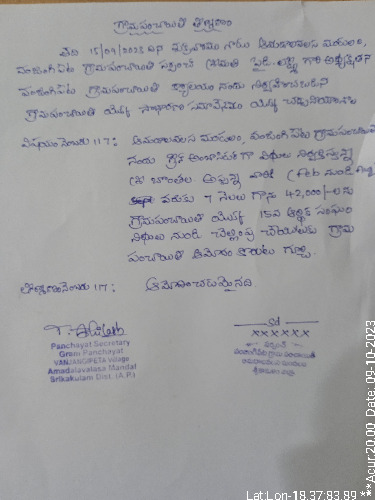 గ్రామపంచాయితి తీర్మానం
తేది 15/09/2023 న ఆమదాలవలస మండలం,
వంజంగిపేట గ్రామపంచాయితి సర్పంచ్ శ్రీమతి పైడి లక్ష్మి గారి అధ్యక్షతన
వంజంగిపేట గ్రామపంచాయితి కార్యాలయం నందు
గ్రామపంచాయితి యొక్క సాధారణ సమావేశము యొక్క
విషయంనెంబరు 117: ఆమదాలవలస మండలం, వంజంగిపేట గ్రామపంచాయితి
నందు గ్రీన్ అంబాసిడర్ గా విధులు
శ్రీ అప్పన్న వారికి (Feb నుండి
వరకు 7 నెలలు గాను 42,000/- లను
గ్రామపంచాయితి యొక్క 15వ ఆర్థిక సంఘం
నిధులు నుండి చెల్లింపు చేయుటకు గ్రామ
పంచాయితి ఆమోదం కొరకు గూర్చి.
తీర్మానంనెంబరు 117: ఆమోదించడమైనది.
Sd
XXXXXX
Panchayat Secretary
Grem Panchayat
VANJANGIPETA Village
Amadalavalasa Mandal
Srikakulam Dist. (A.P)
సర్పంచ్
వంజంగిపేట గ్రామ పంచాయితీ
ఆమదాలవలస మండలం
శ్రీకాకుళం జిల్లా
Lat:Lon-18.37:83.89 ***Acur:20.00 Date: 09-10-2023